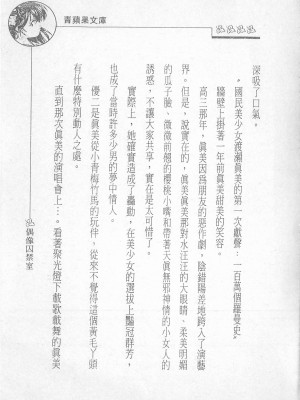 青蘋果文庫
深吸了口氣。
“國民美少女渡瀨真美的第一次獻聲：一百萬個羅曼史”
牆壁上掛著一年前真美甜美的笑容。
高三那年，真美因為朋友的惡作劇，陰錯陽差地跨入了演藝
界。但是，說實在的，真美真美那對水汪汪的大眼睛、柔美明媚
的瓜子臉、微微前翹的櫻桃小嘴和帶著天真無邪神情的小女人的
誘惑，不讓大家共享，實在是太可惜了。
實際上，她確實造成了轟動，在美少女的選拔上豔冠群芳，
也成了當時許多少男的夢中情人。
優二是真美從小青梅竹馬的玩伴，從來不覺得這個黃毛丫頭
有什麼特別動人之處。
直到那次真美的演唱會上…。看著聚光燈下載歌載舞的真美
偶像囚禁室